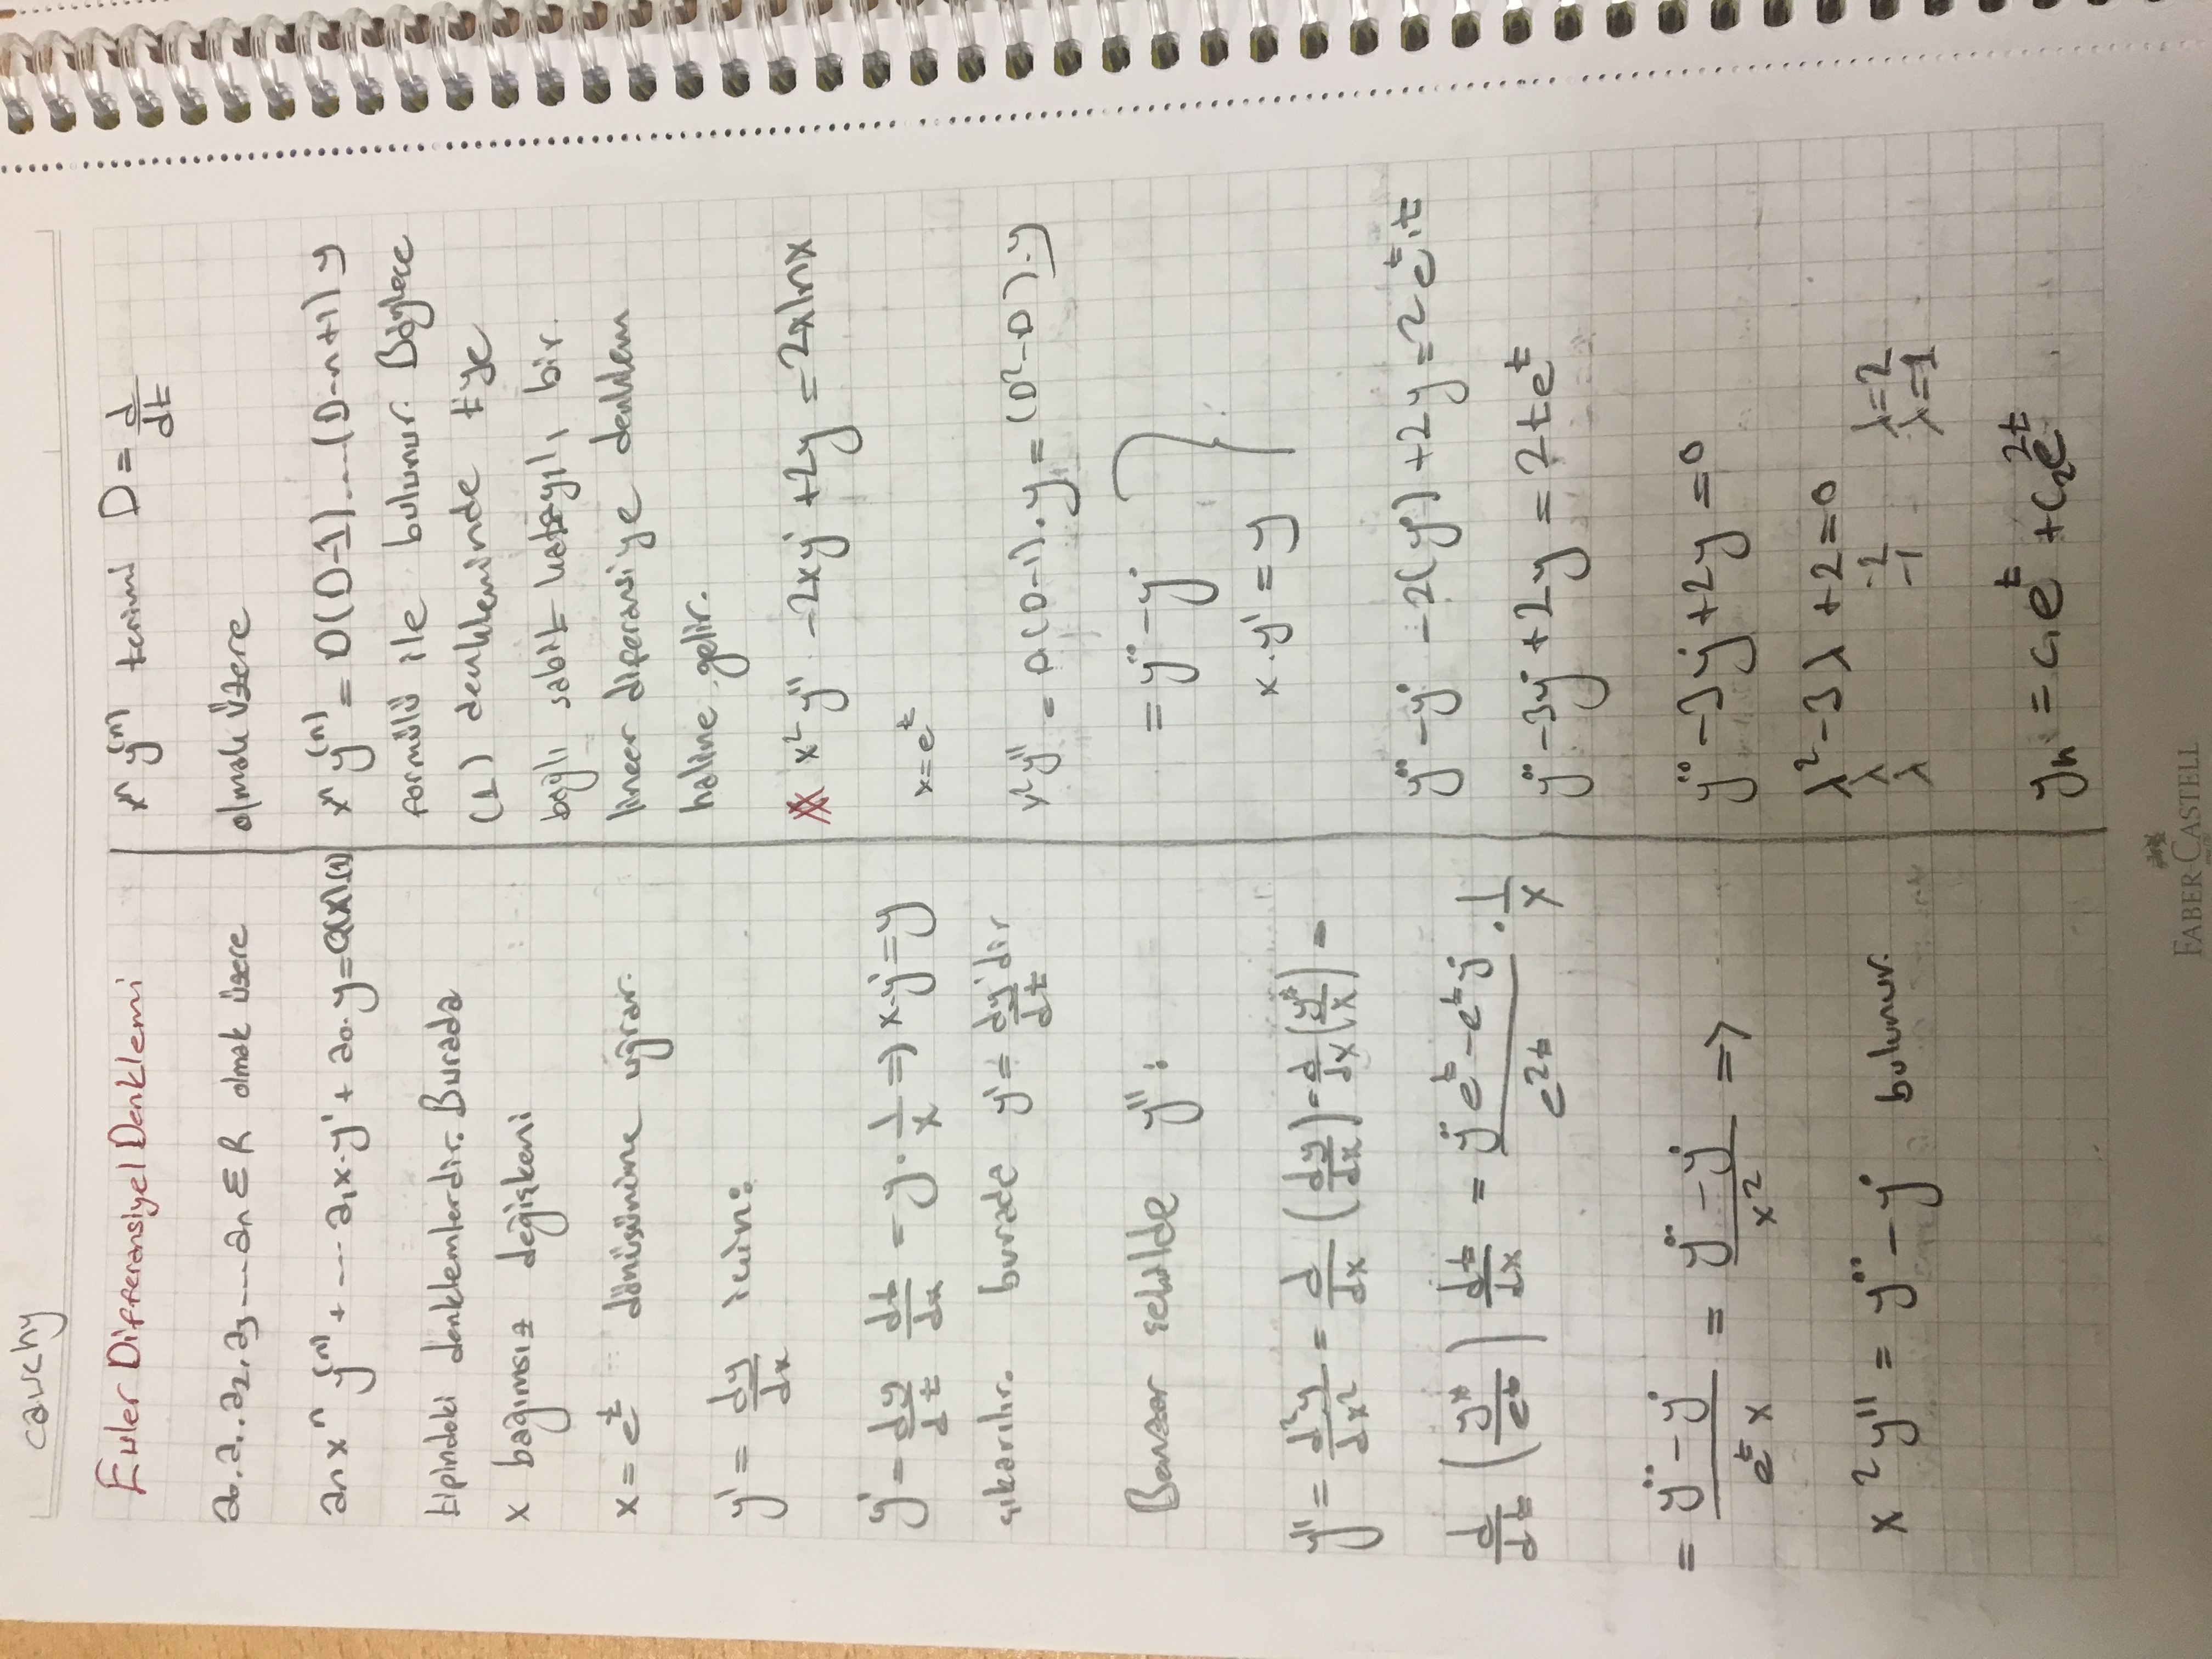 cauchy
Euler Differansiyel Denklemi
a₀, a₁, a₂, a₃ ---- aₙ ∈ R olmak üzere
aₙ xⁿ y⁽ⁿ⁾ + --- a₁x·y' + a₀·y = Q(x) (1)
tipindeki denklemlerdir. Burada
x bağımsız değişkeni
x = eᵗ dönüsünüme uğrar.
y' = dy/dx icin:
y' = dy/dt dt/dx = y · 1/x => x·y' = y
çıkarılır. burada y' = dy/dt 'dir
Benzer sekilde y'' :
y'' = d²y/dx² = d/dx (dy/dx) = d/dx (ẏ/x) =
d/dt (ẏ/eᵗ) dt/dx = (ÿeᵗ - eᵗẏ)/e²ᵗ · 1/x
= (ÿ - ẏ)/(eᵗ x) = (ÿ - ẏ)/x² =>
x² y'' = ÿ - ẏ bulunur.
xⁿ y⁽ⁿ⁾ terimi D = d/dt
olmak üzere
xⁿ y⁽ⁿ⁾ = D(D-1)....(D-n+1) y
formülü ile bulunur. Böylece
(1) denkleminde t'ye
bağlı sabit katsayılı bir.
lineer diferansiye denklem
haline gelir.
x² y'' - 2xy' + 2y = 2x lnx
x = eᵗ
x² y'' = D(D-1)·y = (D²-D)·y
= ÿ - ẏ
x·y' = y
ÿ - ẏ - 2(ẏ) + 2y = 2eᵗ·t
ÿ - 3ẏ + 2y = 2teᵗ
ÿ - 3ẏ + 2y = 0
λ² - 3λ + 2 = 0
λ -2 λ=2
λ -1 λ=1
yₕ = c₁eᵗ + c₂e²ᵗ
FABER-CASTELL